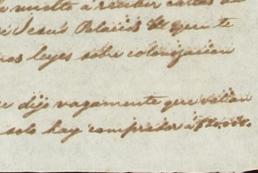 vuelto á recibir cartas de
Jesus Palacios que te
leyes sobre colonizacion
dijo vagamente que valian
solo hay comprador á